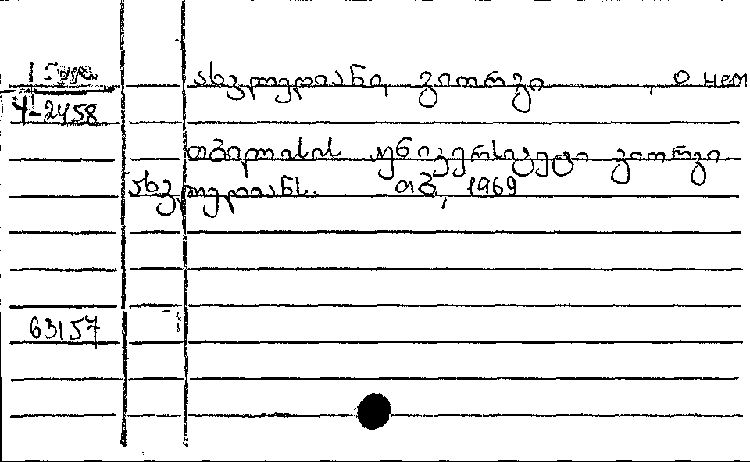 ახვლედიანი, გიორგი, о нем
4-2458
თბილისის უნივერსიტეტი გიორგი
ახვლედიანს. თბ, 1969
63157